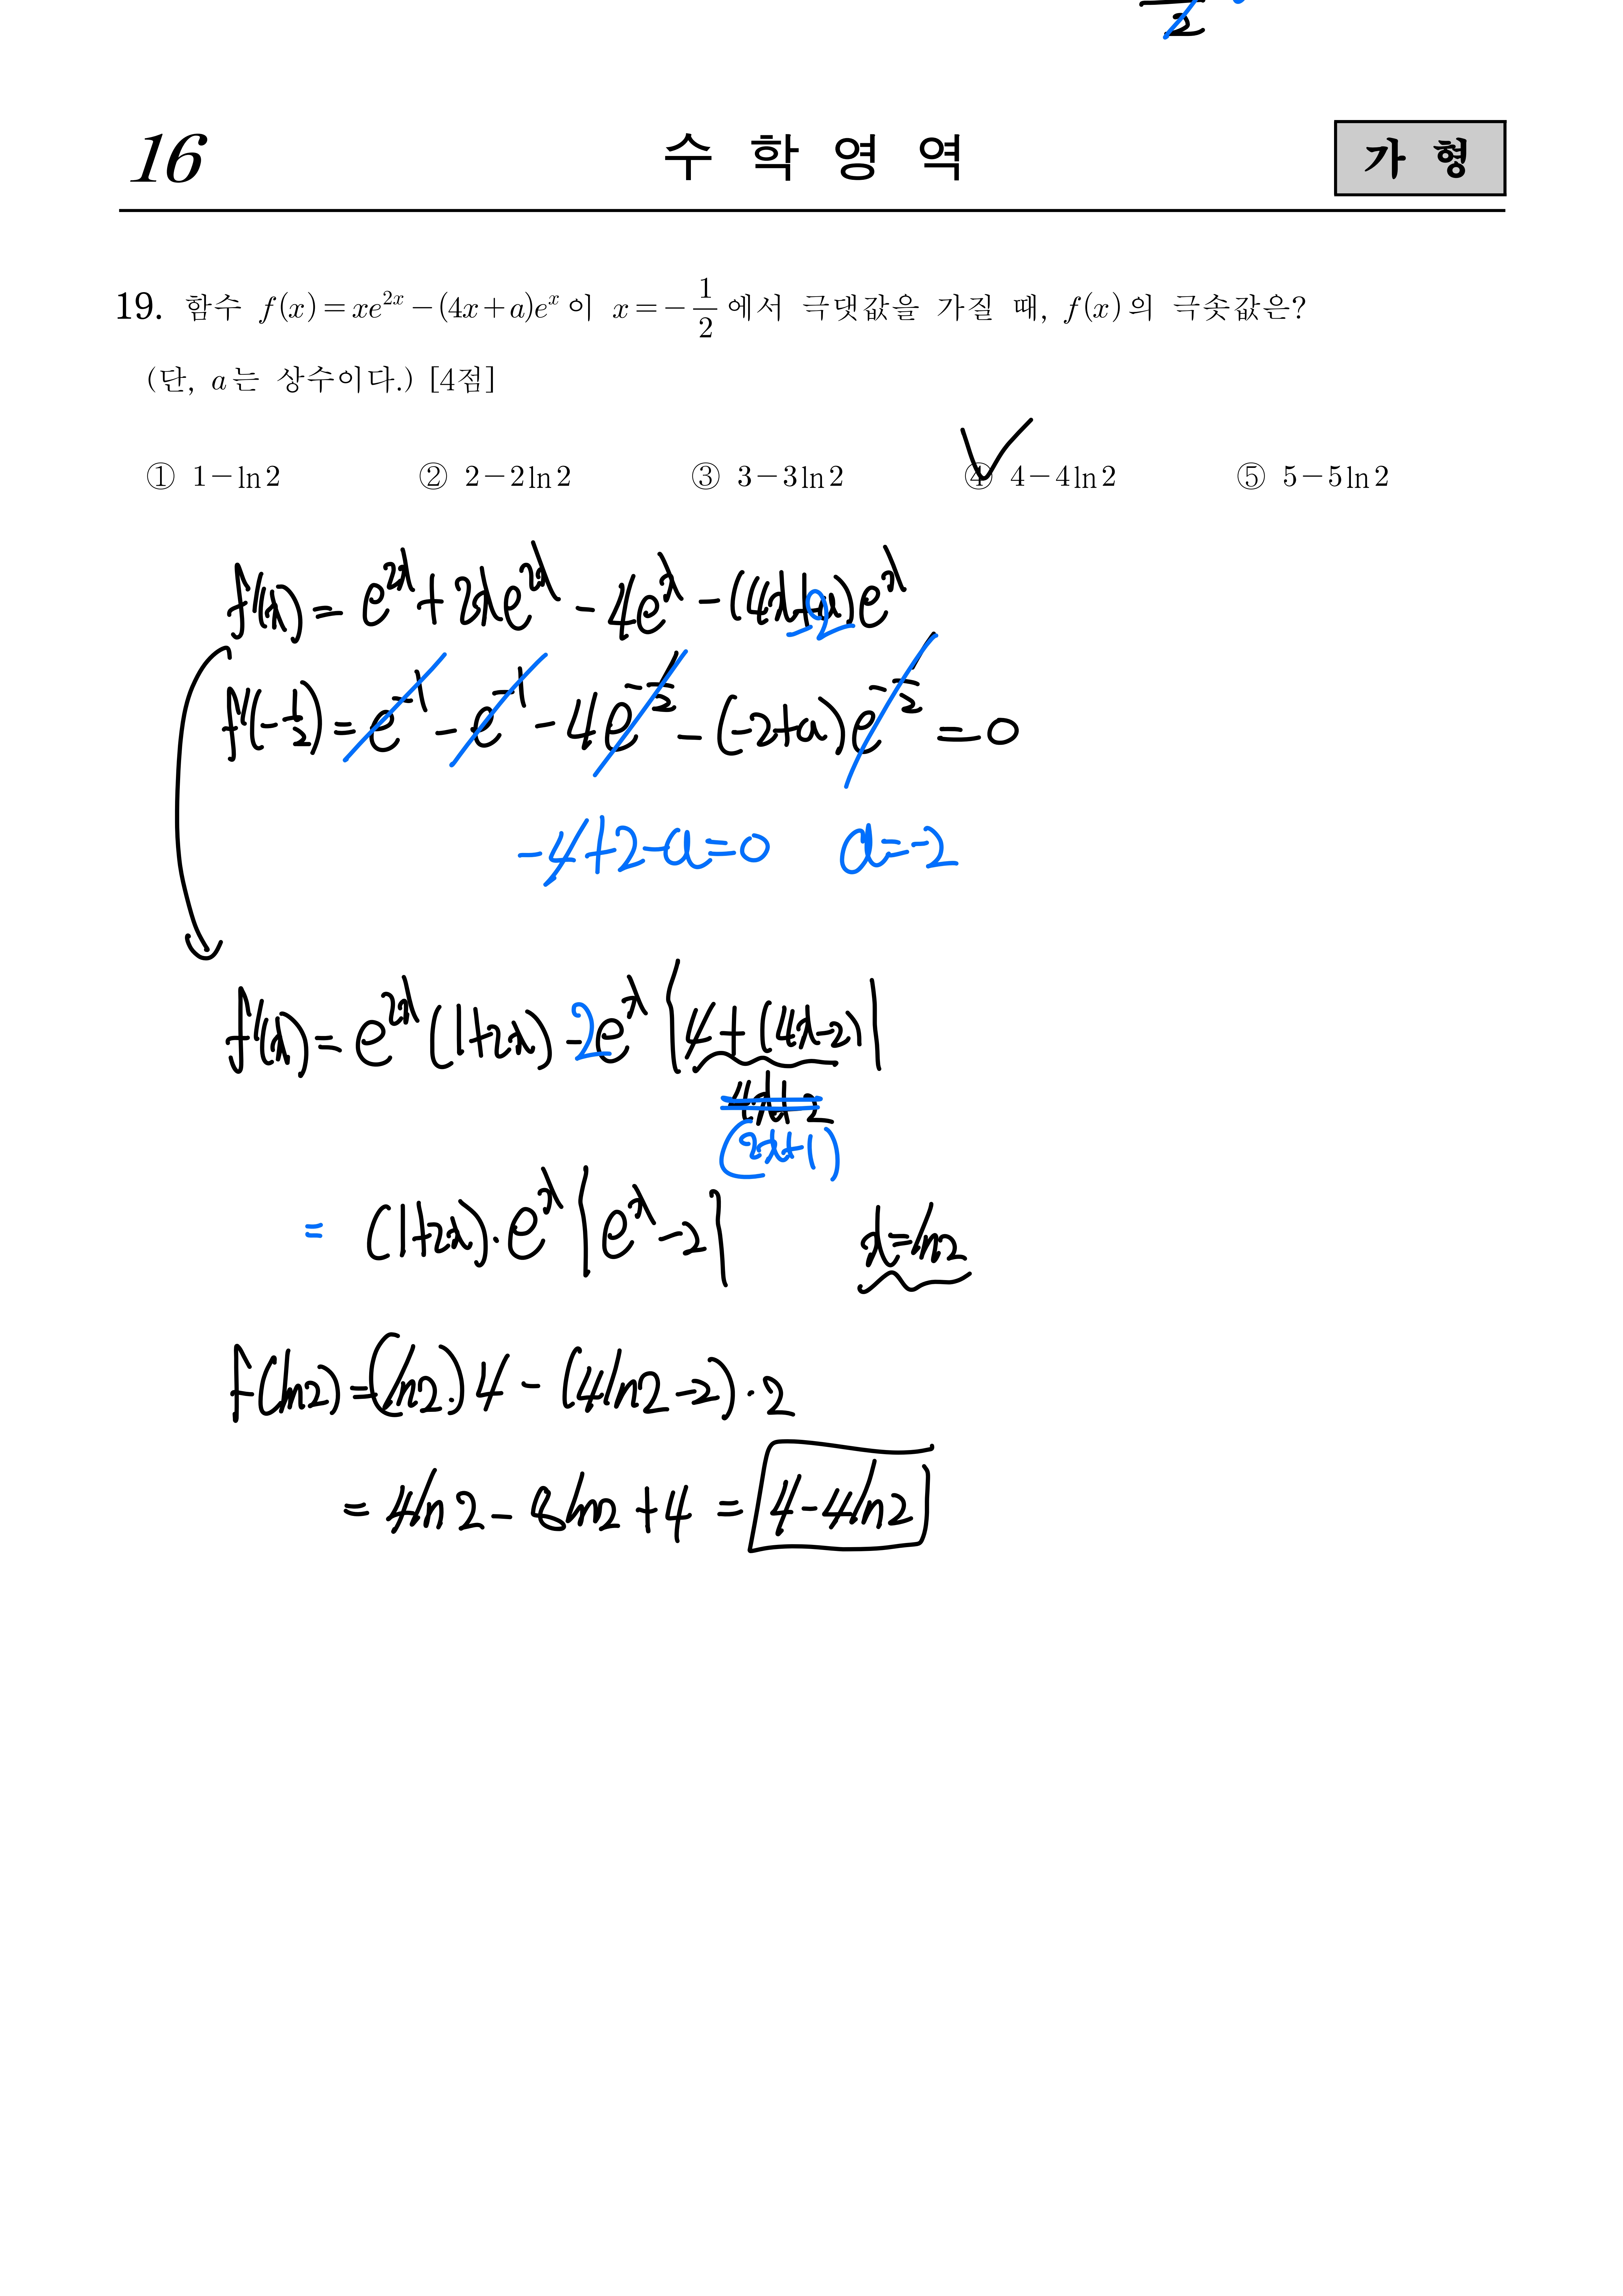 2
16 수 학 영 역 가 형
19. 함수 f(x)=xe^{2x}-(4x+a)e^x 이 x=-\frac{1}{2} 에서 극댓값을 가질 때, f(x)의 극솟값은?
(단, a는 상수이다.) [4점]
① 1-ln2 ② 2-2ln2 ③ 3-3ln2 ④ 4-4ln2 ⑤ 5-5ln2
f'(x)= e^{2x}+2xe^{2x} -4e^x -(4x+a)e^x
-2
f'(-\frac{1}{2})=e^{-1}-e^{-1}-4e^{-\frac{1}{2}}-(-2+a)e^{-\frac{1}{2}}=0
-4+2-a=0 a=-2
f'(x)=e^{2x}(1+2x)-2e^x{4+(4x-2)}
4x+2
(2x+1)
= (1+2x)·e^x{e^x-2} x=ln2
f(ln2)=(ln2)4-(4ln2-2)·2
= 4ln2-8ln2+4 = 4-4ln2